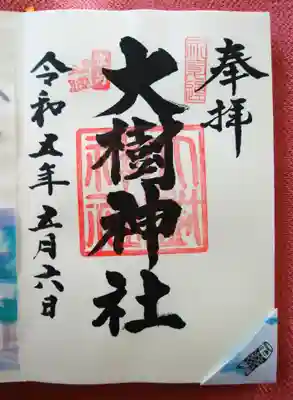 奉拝
大樹神社
令和五年五月六日